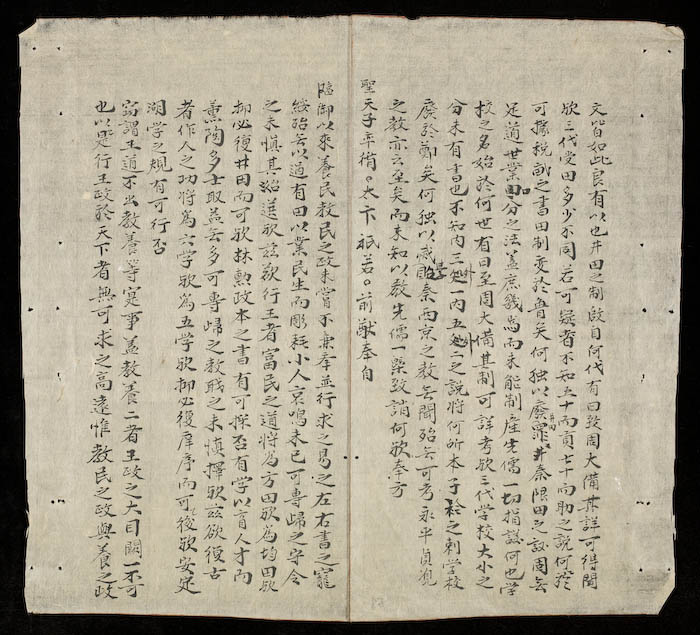 文皆如此良有以也井田之制啟自何代有曰至周大備其詳可得聞
欤三代受田多少不同若可疑者不知五十而貢七十而助之說何於
可據稅畝之書田制变於魯矣何独以廢罪井秦限田之議周無
足道世業口分之法盖庶幾焉而未能制産先儒一切指議何也学
校之名始於何世有曰至周大備其制可詳考欤三代学校大小之
分未有書也不知内三外内五外二之說將何所本子衿之刺学校
廢於鄭矣何独以咸秦西京之教無聞殆無可考永平貞观
之教亦云至矣而未知以教先儒一槩致誚何欤奉方
聖天子平衡太卞祇若前猷奉自
臨御以來養民教民之政未嘗不兼奉並行求之易之左右書之寵
綏殆無以過有田以業民生而彫耗小人哀鳴未已可專歸之守令
之未慎其始選欤茲欲行王者富民之道將為方田欤為均田欤
抑必復井田而可欤林勳政本之書有可採否有学以育人才而
薰陶多士取益無多可專歸之教職之未慎擇欤茲欲復古
者作人之功將為六学欤為五学欤抑必復庠序而可後欤安定
湖学之規有可行否
窃謂王道不出教養等寔事盖教養二者王政之大目闕一不可
也以是行王政於天下者無可求之高遠惟教民之政與養之政